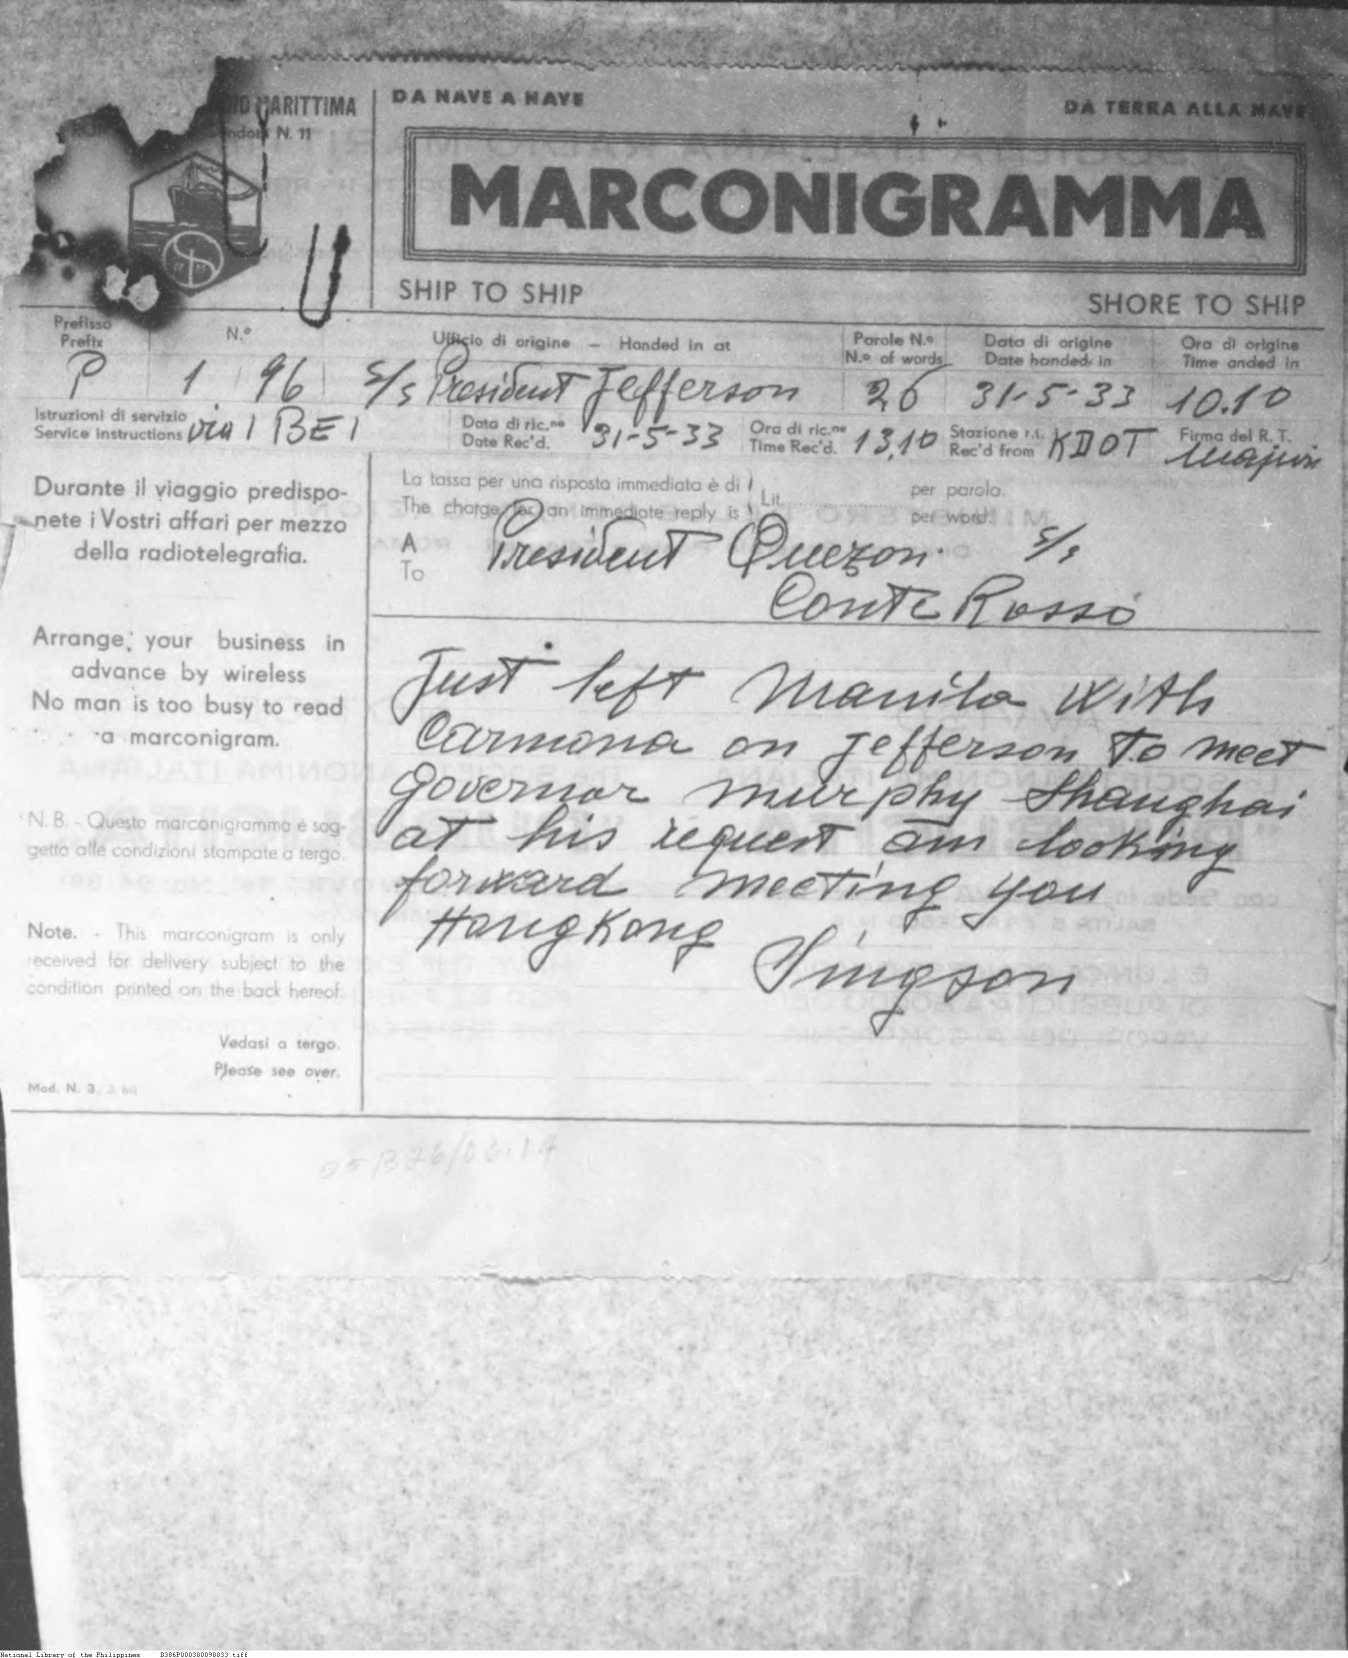 MARITTIMA
N. 11
DA NAVE A NAVE
DA TERRA ALLA NAVE
MARCONIGRAMMA
SHIP TO SHIP
SHORE TO SHIP
Prefisso
Prefix
N.o
Ufficio di origine - Handed in at
Parole N.o
N.o of words
Data di origine
Date handed in
Ora di origine
Time anded in
P 1 96 S/s President Jefferson 26 31-5-33 10.10
Istruzioni di servizio
Service instructions
via IBEI
Data di ric.ne
Date Rec'd.
31-5-33
Ora di ric.ne
Time Rec'd.
13,10
Stazione r.t.
Rec'd from
KDOT
Firma del R. T.
Durante il viaggio predispo-
nete i Vostri affari per mezzo
della radiotelegrafia.
Arrange, your business in
advance by wireless
No man is too busy to read
a marconigram.
N. B. - Questo marconigramma è sog-
getto alle condizioni stampate a tergo.
Note. - This marconigram is only
received for delivery subject to the
condition printed on the back hereof.
Vedasi a tergo.
Please see over.
Mod. N. 3
La tassa per una risposta immediata è di
The charge for an immediate reply is
Lit.
per parola.
per word.
A
To
President Quezon. S/s
Conte Rosso
Just left Manila with
Carmona on Jefferson to meet
Governor Murphy Shanghai
at his request am looking
forward meeting you
HongKong
Singson
National Library of the Philippines B386F000300098033.tiff